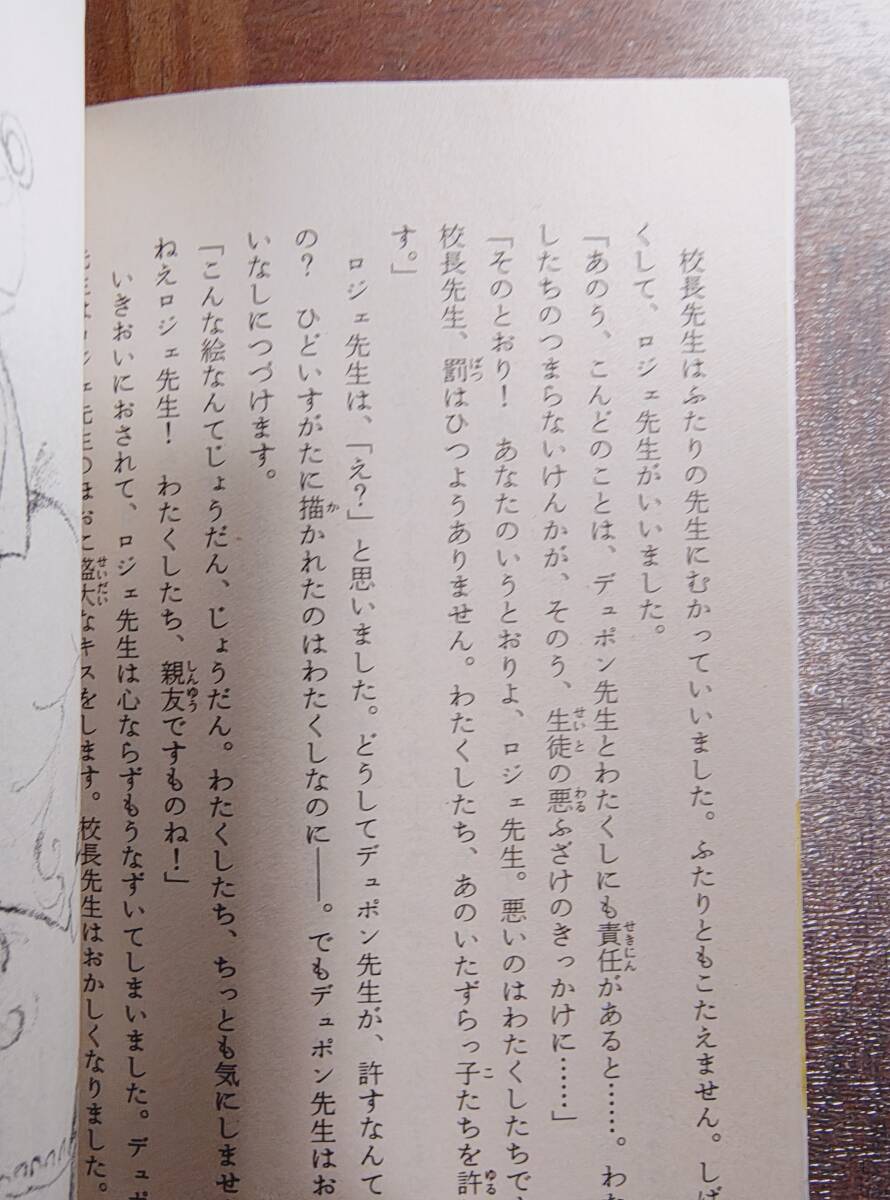 校長先生はふたりの先生にむかっていいました。ふたりともこたえません。しば
くして、ロジェ先生がいいました。
「あのう、こんどのことは、デュポン先生とわたくしにも責任があると……。わた
したちのつまらないけんかが、そのう、生徒の悪ふざけのきっかけに……」
「そのとおり！　あなたのいうとおりよ、ロジェ先生。悪いのはわたくしたちで
校長先生、罰はひつようありません。わたくしたち、あのいたずらっ子たちを許
す。」
ロジェ先生は、「え？」と思いました。どうしてデュポン先生が、許すなんて
の？　ひどいすがたに描かれたのはわたくしなのに――。でもデュポン先生はお
いなしにつづけます。
「こんな絵なんてじょうだん、じょうだん。わたくしたち、ちっとも気にしませ
ねえロジェ先生！　わたくしたち、親友ですものね！」
いきおいにおされて、ロジェ先生は心ならずもうなずいてしまいました。デュポ
先生はロジェ先生のほおに盛大なキスをします。校長先生はおかしくなりました。